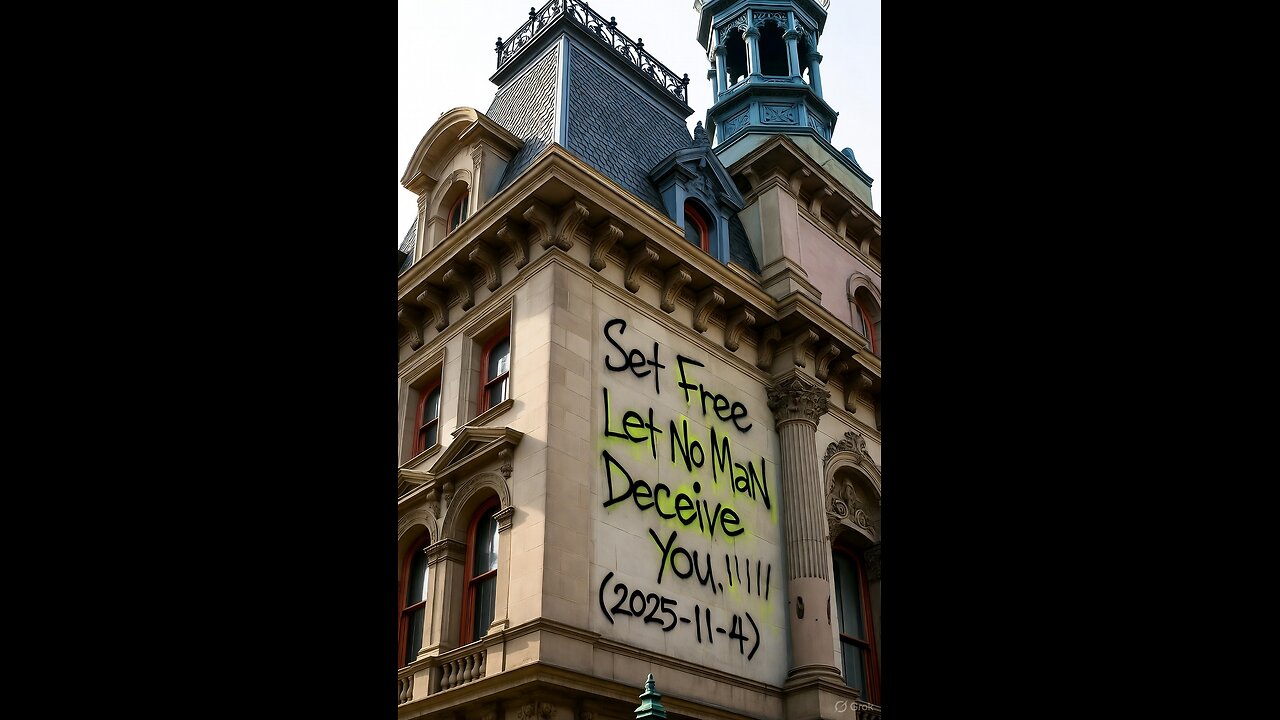 Set Free
Let No MaN
Deceive
You.!!!!!
(2025-11-4)
Grok